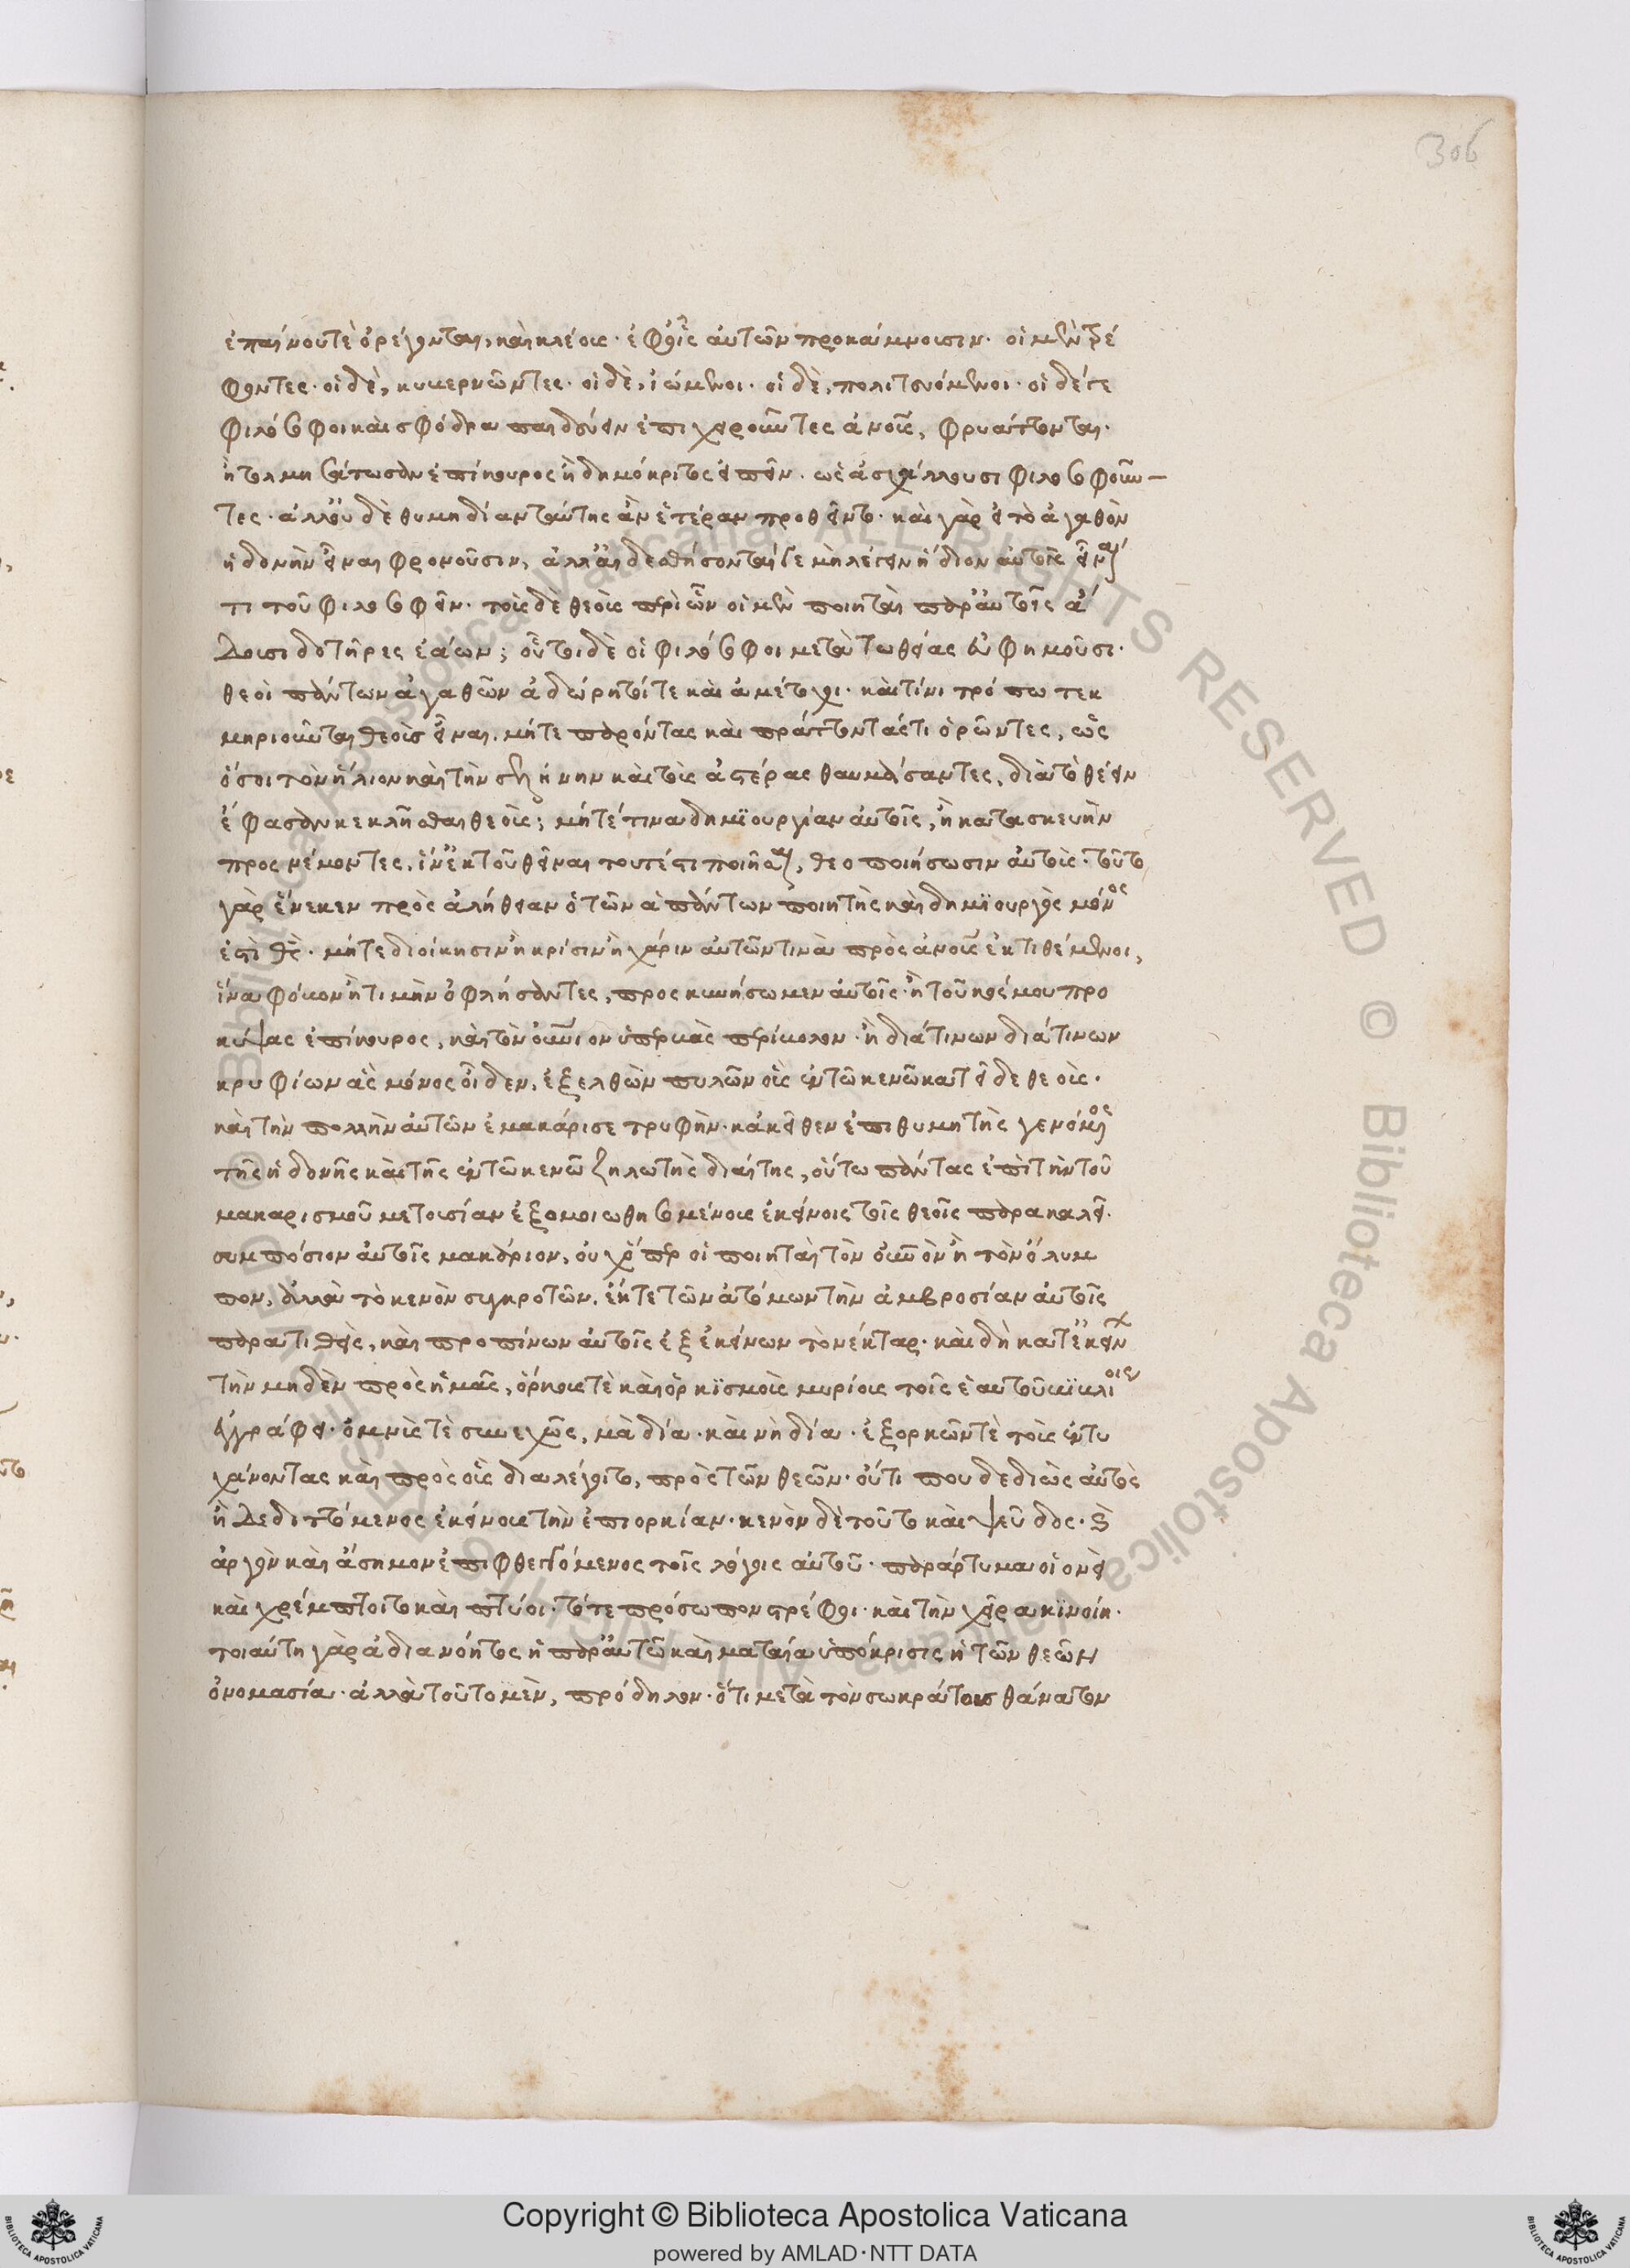 ἐπαίνου τὲ ὀρέγονται, καὶ κλέους· ἐφ' οἷς αὐτῶν προκάμνουσιν· οἱ μὲν τρέ
φοντες· οἱ δὲ, κυβερνῶντες· οἱ δὲ, ἰώμενοι· οἱ δὲ, πολιτευόμενοι· οἱ δέ γε
φιλόσοφοι καὶ σφόδρα παιδεύειν ἐπιχειροῦντες ἀνους, φρυάττονται·
ἢ τολμησάτωσαν ἐπίκουρος ἢ δημόκριτος εἰπεῖν· ὡς ἀσχάλλουσι φιλοσοφοῦν-
τες· ἀλλ' οὐδὲ θυμηδίαν ταύτης ἂν ἑτέραν προθεῖντο· καὶ γὰρ εἰ τὸ ἀγαθὸν
ἡδονὴν εἶναι φρονοῦσιν, ἀλλ' αἰδεσθήσονταί γε μὴ λέγειν ἥδιον αὐτοῖς εἶναί
τι τοῦ φιλοσοφεῖν· τοὺς δὲ θεοὺς περὶ ὧν οἱ μὲν ποιηταὶ παρ' αὐτοῖς ᾄ
δουσι δοτῆρες ἐάων; οὗτοι δὲ οἱ φιλόσοφοι μετὰ τωθείας εὐφημοῦσι·
θεοὶ πάντων ἀγαθῶν ἀδώρητοί τε καὶ ἀμέτοχοι· καὶ τίνι τρόπω τεκ
μηριοῦνται θεοὺς εἶναι, μήτε παρόντας καὶ πράττοντάς τι ὁρῶντες, ὡς
ὅσοι τὸν ἥλιον καὶ τὴν σελήνην καὶ τοὺς ἀστέρας θαυμάσαντες, διὰ τὸ θέειν
ἔφασαν κεκλῆσθαι θεούς; μήτέ τινα δημϊουργίαν αὐτοῖς, ἢ κατασκευὴν
προσνέμοντες, ἵν' ἐκ τοῦ θεῖναι τουτέστι ποιῆσαι, θεοποιήσωσιν αὐτούς· τούτου
γὰρ ἕνεκεν πρὸς ἀλήθειαν ὁ τῶν ἁπάντων ποιητὴς καὶ δημϊουργὸς μόνος
ἐστὶ θς· μήτε διοίκησιν ἢ κρίσιν ἢ χάριν αὐτῶν τινὰ πρὸς ἀνους ἐκτιθέμενοι,
ἵνα φόβον ἢ τιμὴν ὀφλήσαντες, προσκυνήσωμεν αὐτοῖς· ἢ τοῦ κόσμου προ
κύψας ἐπίκουρος, καὶ τὸν οὐνιον ὑπερβὰς περίβολον· ἢ διά τινων διά τινων
κρυφίων ἃς μόνος οἶδεν, ἐξελθὼν πυλῶν οὓς ἐν τῶ κενῶ κατεῖδε θεούς·
καὶ τὴν πολλὴν αὐτῶν ἐμακάρισε τρυφὴν· κἀκεῖθεν ἐπιθυμητὴς γενόμενος
τῆς ἡδονῆς καὶ τῆς ἐν τῶ κενῶ ζηλωτὴς διαίτης, οὕτω πάντας ἐπὶ τὴν τοῦ
μακαρισμοῦ μετουσίαν ἐξομοιωθησομένους ἐκείνοις τοῖς θεοῖς παρακαλεῖ·
συμπόσιον αὐτοῖς μακάριον, οὐχ ὅπερ οἱ ποιηταὶ τὸν οὐνον ἢ τὸν ὄλυμ
πον, ἀλλὰ τὸ κενὸν συγκροτῶν, ἔκ τε τῶν ἀτόμων τὴν ἀμβροσίαν αὐτοῖς
παρατιθεὶς, καὶ προπίνων αὐτοῖς ἐξ ἐκείνων τὸ νέκταρ· καὶ δὴ κατ' ἐκείνων
τὴν μηδὲν πρὸς ἡμᾶς, ὅρκους τὲ καὶ ὁρκϊσμοὺς μυρίους τοῖς ἑαυτοῦ βϊβλίοις
ἐγγράφει· ὀμνύς τὲ συνεχῶς, μὰ δία· καὶ νὴ δία· ἐξορκῶν τὲ τοὺς ἐντυ
χάνοντας καὶ πρὸς οὓς διαλέγοιτο, πρὸς τῶν θεῶν· οὔτι που δεδιὼς αὐτὸς
ἢ δεδιττόμενος ἐκείνους τὴν ἐπιορκίαν· κενὸν δὲ τοῦτο καὶ ψεῦδος· καὶ
ἀργὸν καὶ ἄσημον ἐπιφθεγγόμενος τοῖς λόγοις αὐτοῦ· παράρτυμα οἱονεὶ
καὶ χρέμπτοιτο καὶ πτύοι· τό τε πρόσωπον στρέφοι· καὶ τὴν χεῖρα κϊνοίη·
τοιαύτη γὰρ ἀδιανόητος ἡ παρ' αὐτῶ καὶ ματαία ὑπόκρισις ἡ τῶν θεῶν
ὀνομασία· ἀλλὰ τοῦτο μὲν, πρόδηλον· ὅτι μετὰ τὸν σωκράτους θάνατον